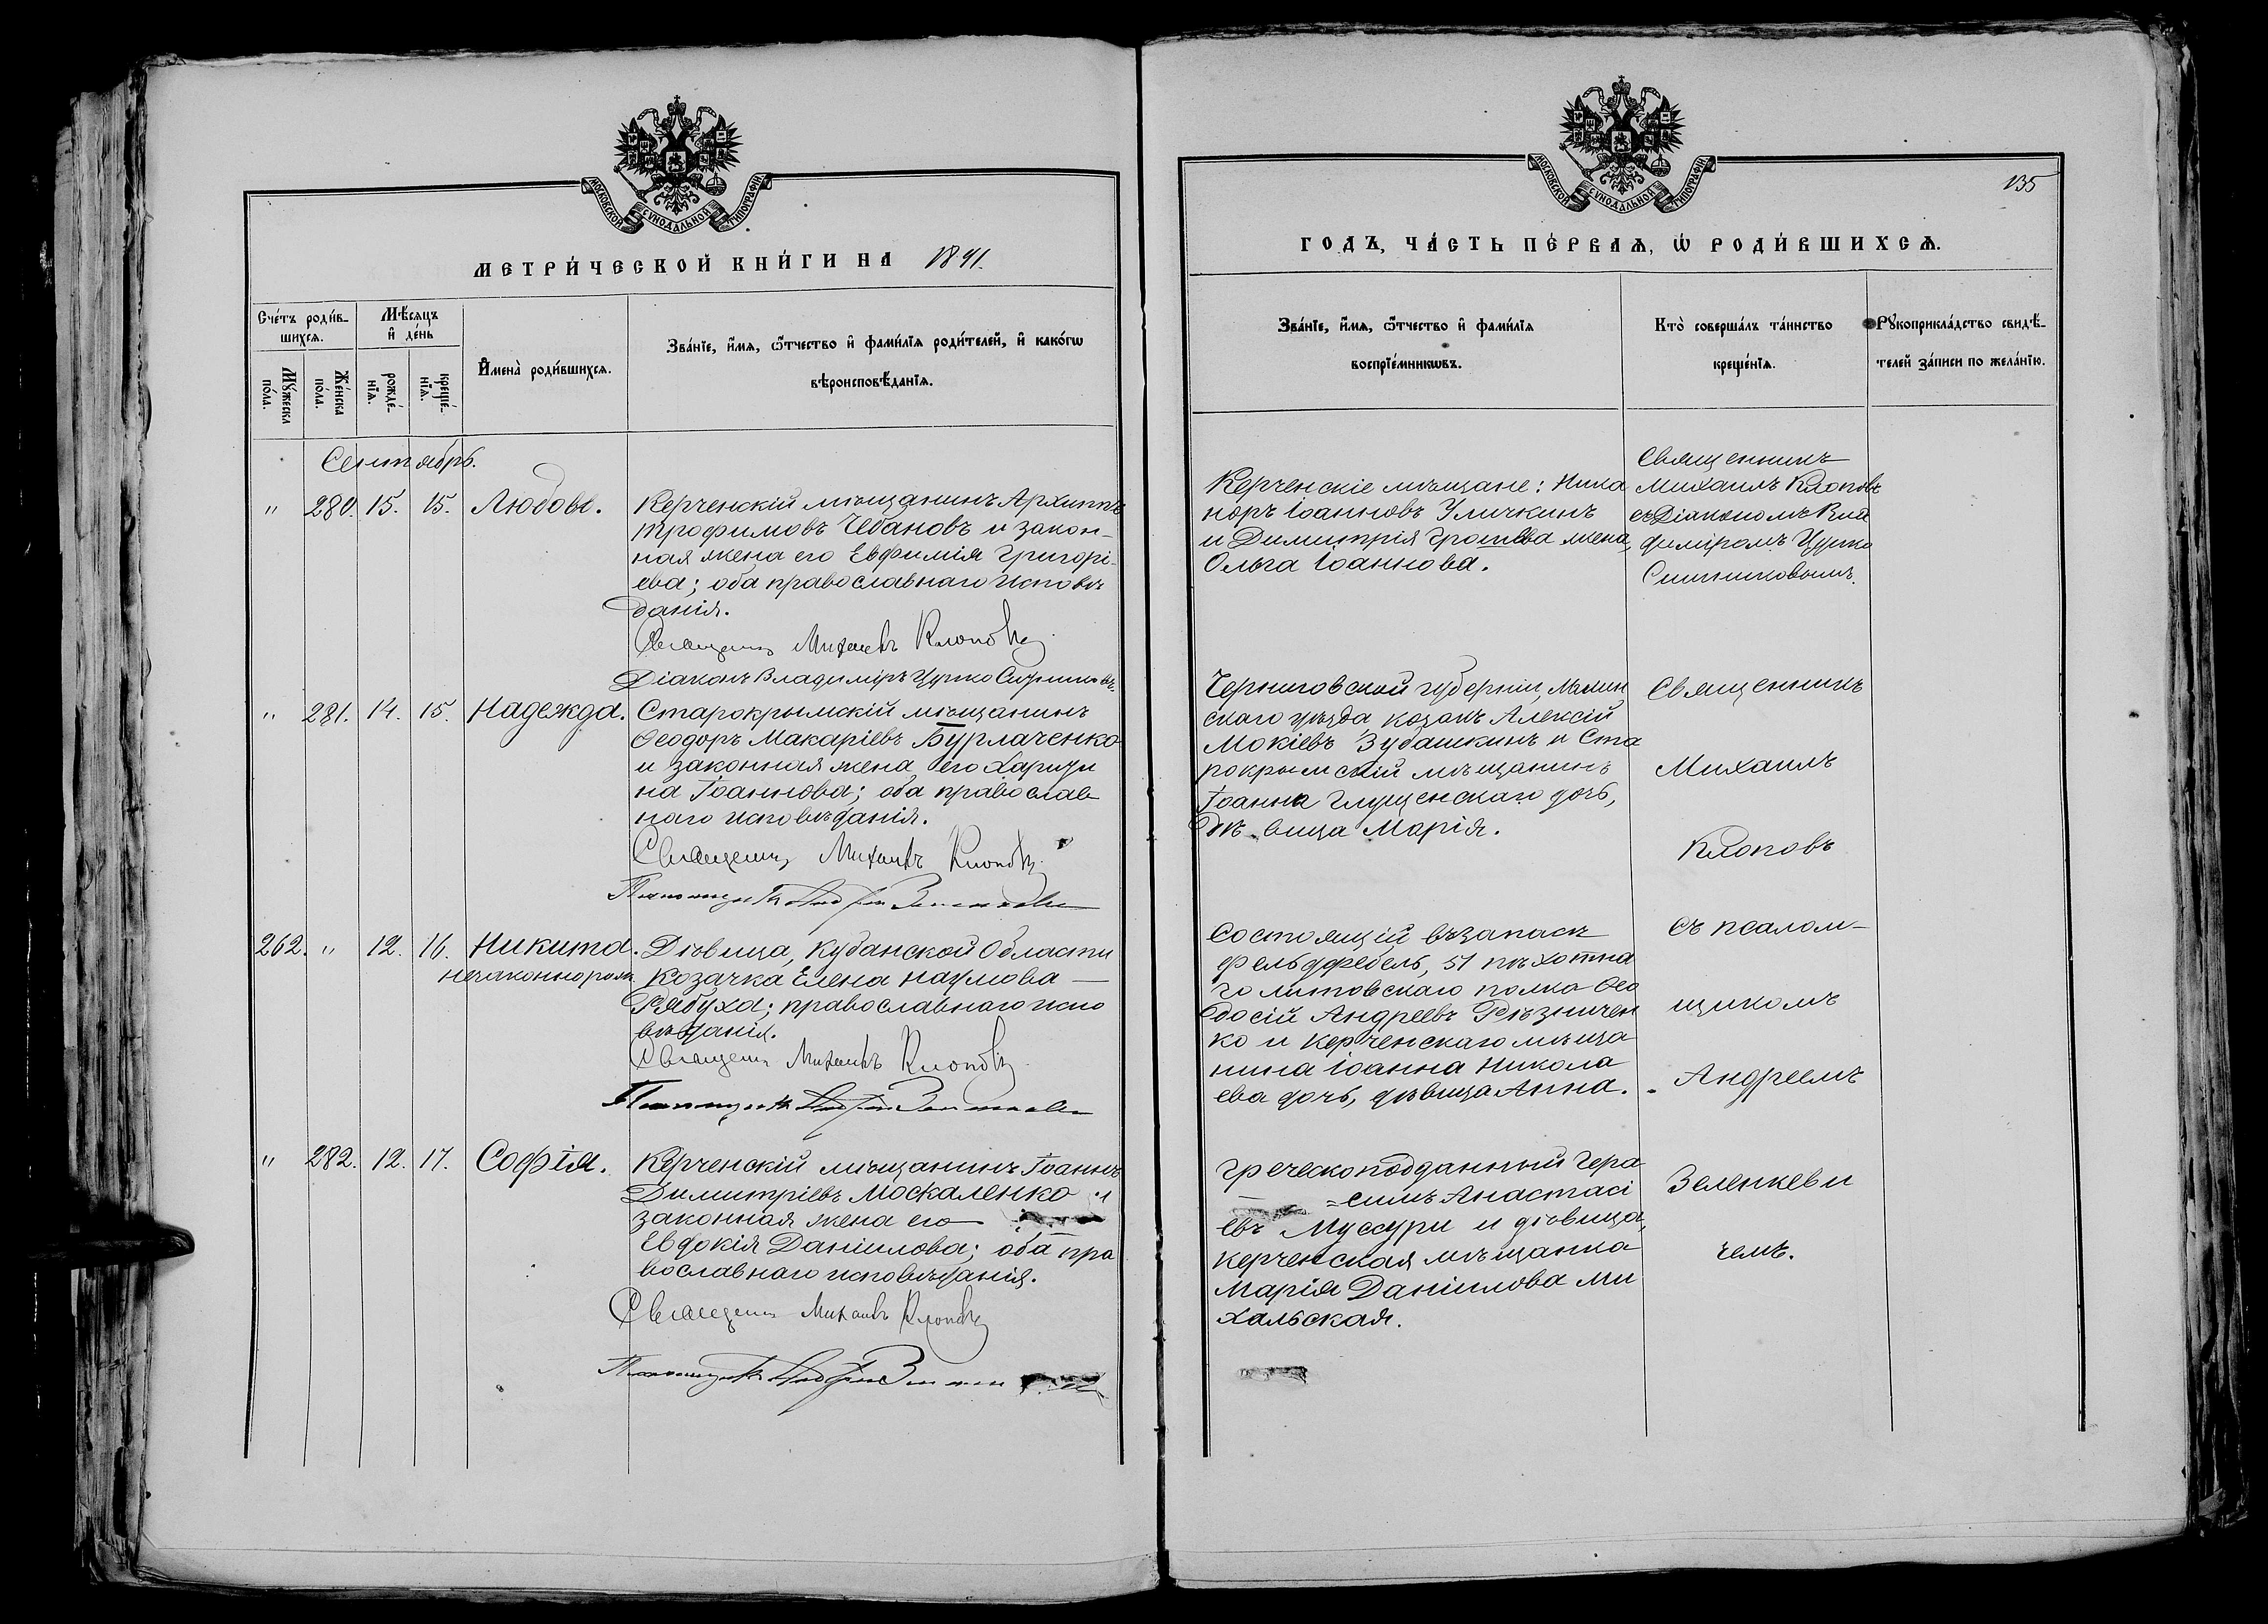 МОСКОВСКОЙ СѴНОДАЛЬНОЙ ТИПОГРАФІИ
МЕТРИ́ЧЕСКОЙ КНИ́ГИ НА 1891.
Сче́тъ роди́в-
шихсѧ.
Мѣ́сяцъ
и҆ де́нь
Мꙋ́жеска
по́ла.
Же́нска
по́ла.
рожде́-
нїѧ.
креще́-
нїѧ.
И҆мена̀ роди́вшихсѧ.
Зва́нїе, и҆́мѧ, ѻ҆́тчество и҆ фами́лїѧ роди́телей, и҆ како́гѡ
вѣроисповѣ́данїѧ.
Сентябрь.
" 280. 15. 15. Любовь.
Керченскій мѣщанинъ Архиппъ
Трофимовъ Чебановъ и закон-
ная жена его Евфимія Григорі-
ева; оба православнаго исповѣ
данія.
Священникъ Михаилъ Клоповъ
Діаконъ Владиміръ Цурко
" 281. 14. 15. Надежда.
Старокрымскій мѣщанинъ
Ѳеодоръ Макаріевъ Бурлаченко
и законная жена его Харити
на Іоаннова; оба православ
наго исповѣданія.
Священникъ Михаилъ Клоповъ
Псаломщикъ Андрей Зеленкевич
262. " 12. 16. Никита.
незаконнорож
Дѣвица, Кубанской Области
Козачка Елена Наумова —
Рябуха; православнаго испо
вѣданія.
Священникъ Михаилъ Клоповъ
Псаломщикъ Андрей Зеленкевич
" 282. 12. 17. Софія.
Керченскій мѣщанинъ Іоаннъ
Димитріевъ Москаленко и
законная жена его
Евдокія Даніилова; оба пра
вославнаго исповѣданія.
Священникъ Михаилъ Клоповъ
Псаломщикъ Андрей
МОСКОВСКОЙ СѴНОДАЛЬНОЙ ТИПОГРАФІИ
135
ГОДЪ, ЧА́СТЬ ПЕ́РВАѦ, Ѡ҆ РОДИ́ВШИХСѦ.
Зва́нїе, и҆́мѧ, ѻ҆́тчество и҆ фами́лїѧ
воспрїе́мникѡвъ.
Кто̀ соверша́лъ та́инство
креще́нїѧ.
Рꙋкоприкла́дство свидѣ́-
телей за́писи по жела́нїю.
Керченскіе мѣщане:Ника
норъ Іоанновъ Уличкинъ
и Димитрія Грошева жена,
Ольга Іоаннова.
Священникъ
Михаилъ Клоповъ
съ Діакономъ Вла
диміромъ Цурко
Черниговской губерніи, Мглин
скаго уѣзда козакъ Алексій
Мокіевъ Зубашкинъ и Ста
рокрымскій мѣщанинъ
Іоанна Глущенскаго дочь,
дѣвица Марія.
Священникъ
Михаилъ
Клоповъ
Состоящій въ запасѣ
фельдфебель, 51 пѣхотна
го Литовскаго полка Ѳео
досій Андреевъ Рѣзничен
ко и Керченскаго мѣща
нина Іоанна Никола
ева дочь, дѣвица Анна.
съ псалом-
щикомъ
Андреемъ
Греческоподданный Гера
=симъ Анастасі
евъ Муссури и дѣвица,
керченская мѣщанка
Марія Даніилова Ми
хальская.
Зеленкеви
чемъ.